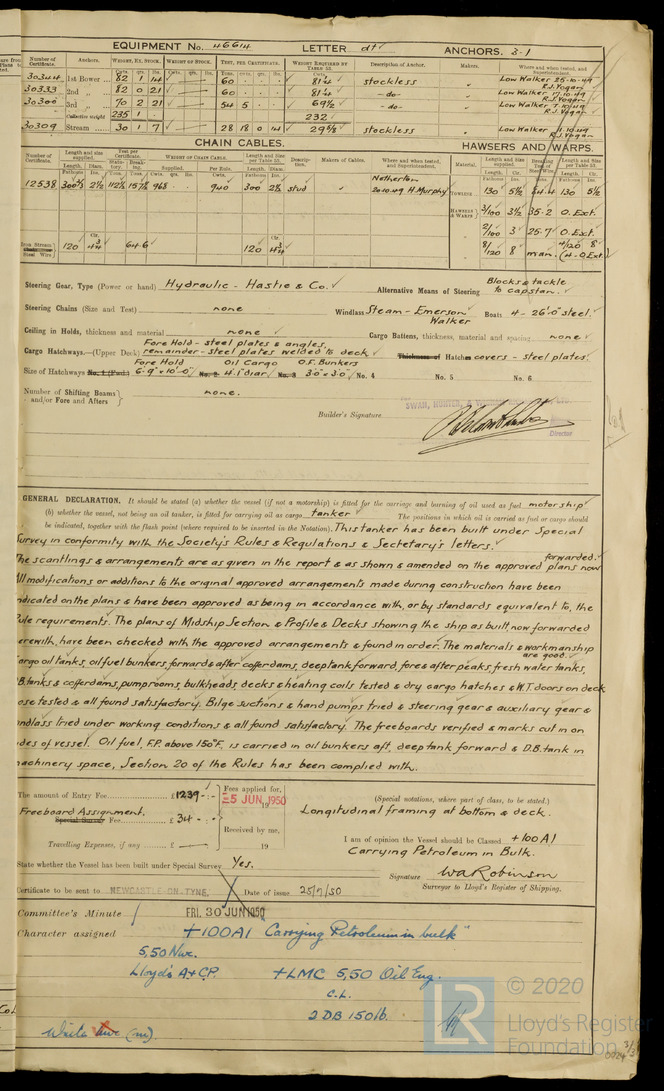 EQUIPMENT No. 46614 LETTER dt ANCHORS. 3-1
Number of Certificate. Anchors. WEIGHT, EX. STOCK. WEIGHT OF STOCK. TEST, PER CERTIFICATE. WEIGHT REQUIRED BY TABLE 53. Description of Anchor. Makers. Where and when tested, and Superintendent.
30344 1st Bower 82 1 14 60 81¼ stockless Low Walker 25.10.49
R.J. Vogan
30333 2nd " 82 0 21 60 81¼ - do - Low Walker 17.10.49
R.J. Vogan
30300 3rd " 70 2 21 54 5 69½ - do - Low Walker 7.10.49
R.J. Vogan
Collective weight 235 1 232
30309 Stream 30 1 7 28 18 0 14 stockless Low Walker
R.J. Vogan
CHAIN CABLES. HAWSERS AND WARPS.
Number of Certificate. Length and size supplied. Test per Certificate. WEIGHT OF CHAIN CABLE. Length and Size per Table 53. Description. Makers of Cables. Where and when tested, and Superintendent. Material. Length and Size supplied. Length and Size per Table 53.
Netherton
12538 968 940 300 stud 20.10.49 H. Murphy
TOWLINE 130 5½ 130 5½
HAWSERS & WARPS 3/100 3½ 35.2 O. Ext.
2/100 3 25.7 O. Ext.
120 64.6 120 8/120 8 man. (4-O. Ext.)
Steering Gear, Type (Power or hand) Hydraulic - Hastie & Co. Alternative Means of Steering Blocks & tackle to capstan.
Steering Chains (Size and Test) none Windlass Steam - Emerson Walker Boats 4 - 26'.0" steel.
Ceiling in Holds, thickness and material none Cargo Battens, thickness, material and spacing none
Fore Hold - steel plates & angles,
Cargo Hatchways.—(Upper Deck) remainder - steel plates welded to deck Thickness of Hatches covers - steel plates
Fore Hold Oil Cargo O.F. Bunkers
Size of Hatchways No. 1 (Fwd.) 6'.9" x 10'.0" No. 2 4'.1" diar No. 3 3'.0" x 3'.0" No. 4 No. 5 No. 6
Number of Shifting Beams and/or Fore and Afters } none.
Builder's Signature
SWAN, HUNTER, &
Director
GENERAL DECLARATION. It should be stated (a) whether the vessel (if not a motorship) is fitted for the carriage and burning of oil used as fuel motorship
(b) whether the vessel, not being an oil tanker, is fitted for carrying oil as cargo tanker The positions in which oil is carried as fuel or cargo should
be indicated, together with the flash point (where required to be inserted in the Notation). This tanker has been built under Special
Survey in conformity with the Society's Rules & Regulations & Secretary's letters.
The scantlings & arrangements are as given in the report & as shown & amended on the approved plans now forwarded.
All modifications or additions to the original approved arrangements made during construction have been
indicated on the plans & have been approved as being in accordance with, or by standards equivalent to, the
Rule requirements. The plans of Midship Section & Profile & Decks showing the ship as built, now forwarded
herewith, have been checked with the approved arrangements & found in order. The materials & workmanship are good.
Cargo oil tanks, oil fuel bunkers, forward & after cofferdams, deep tank forward, fore & after peaks, fresh water tanks,
D.B. tanks & cofferdams, pump rooms, bulkheads, decks & heating coils tested & dry cargo hatches & W.T. doors on deck
hose tested & all found satisfactory. Bilge suctions & hand pumps tried & steering gear & auxiliary gear &
windlass tried under working conditions & all found satisfactory. The freeboards verified & marks cut in on
sides of vessel. Oil fuel, F.P. above 150°F, is carried in oil bunkers aft, deep tank forward & D.B. tank in
machinery space, Section 20 of the Rules has been complied with.
The amount of Entry Fee £1239 - : - Fees applied for,
-5 JUN. 1950
(Special notations, where part of class, to be stated.)
Freeboard Assignment.
Special Survey Fee £ 34 - : - Longitudinal framing at bottom & deck.
Received by me,
Travelling Expenses, if any £ — 19
I am of opinion the Vessel should be Classed +100A1
Carrying Petroleum in Bulk.
State whether the Vessel has been built under Special Survey Yes.
Signature W.A. Robinson
Surveyor to Lloyd's Register of Shipping.
Certificate to be sent to NEWCASTLE-ON-TYNE. Date of issue 25/7/50
Committee's Minute FRI. 30 JUN 1950
Character assigned +100A1 Carrying Petroleum in bulk"
5,50 Nwc.
Lloyd's A & C.P. +LMC 5,50 Oil Eng.
C.L.
2 DB 150 lb.
Write Nwc (m).
LR
© 2020
Lloyd's Register
Foundation